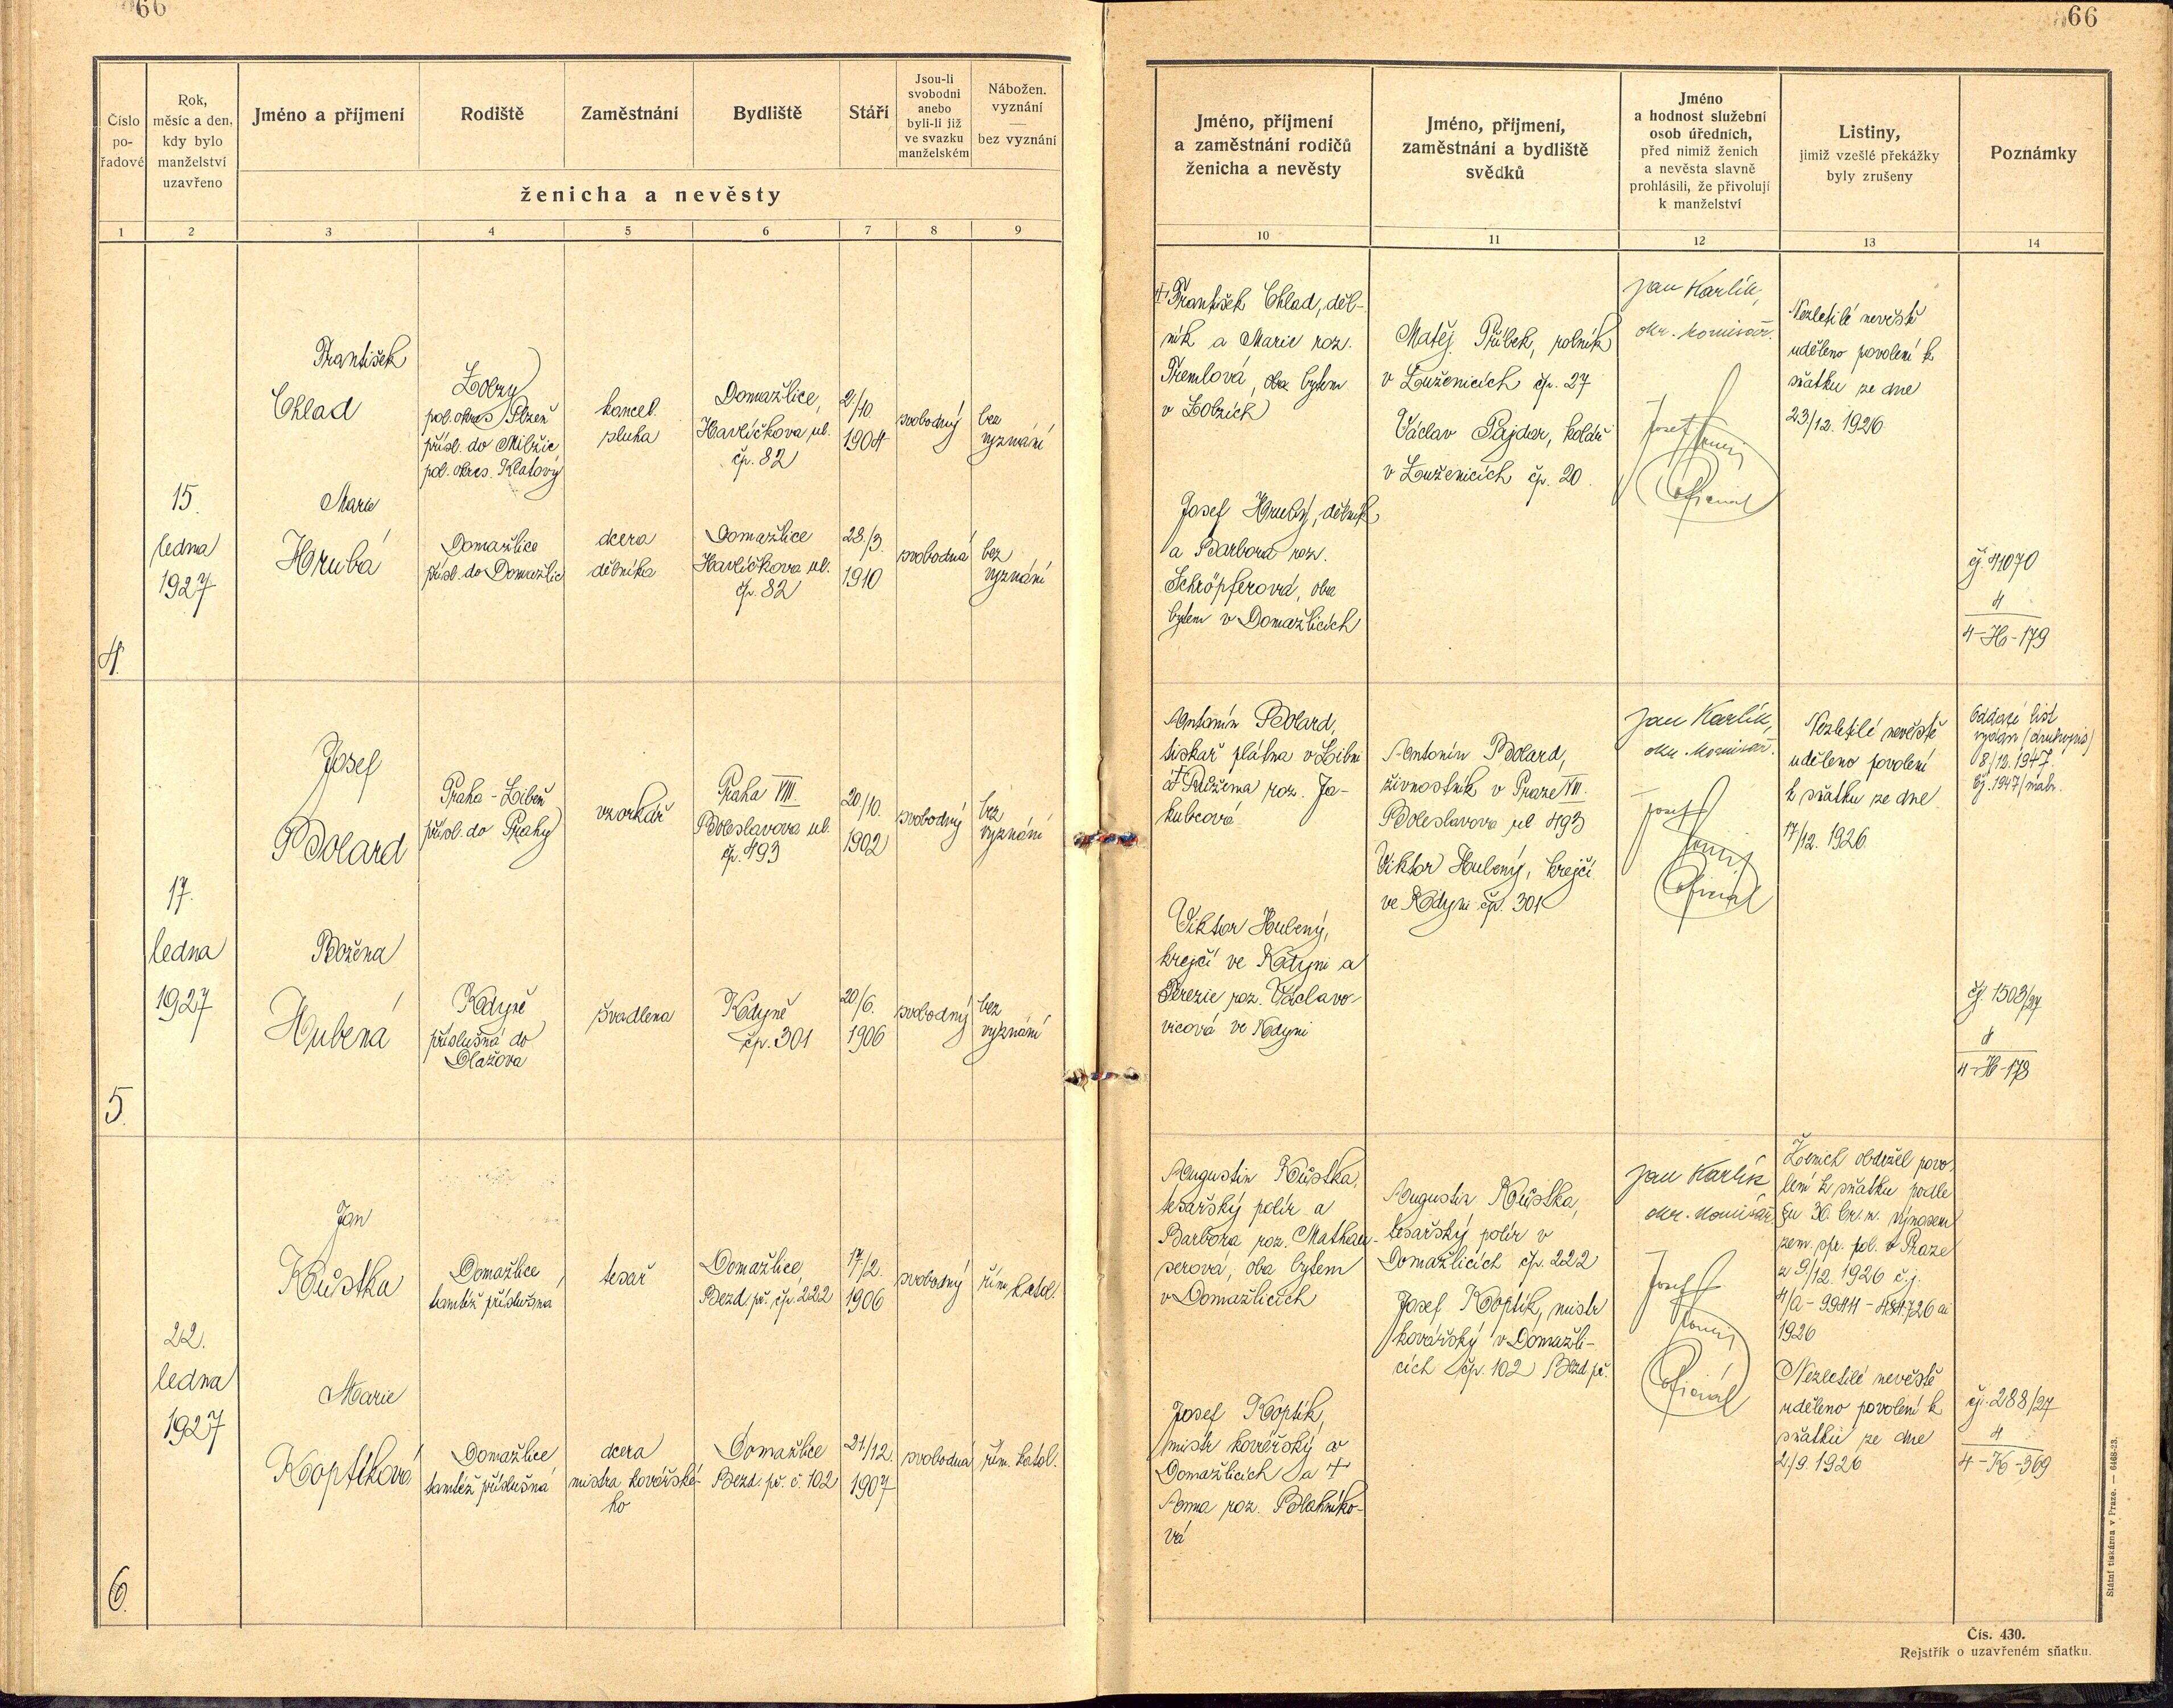 66
66
Číslo
po-
řadové
Rok,
měsíc a den,
kdy bylo
manželství
uzavřeno
Jméno a příjmení
Rodiště
Zaměstnání
Bydliště
Stáří
Jsou-li
svobodni
anebo
byli-li již
ve svazku
manželském
Nábožen.
vyznání
—
bez vyznání
ženicha a nevěsty
1 2 3 4 5 6 7 8 9
Jméno, příjmení
a zaměstnání rodičů
ženicha a nevěsty
Jméno, příjmení,
zaměstnání a bydliště
svědků
Jméno
a hodnost služební
osob úředních,
před nimiž ženich
a nevěsta slavně
prohlásili, že přivolují
k manželství
Listiny,
jimiž vzešlé překážky
byly zrušeny
Poznámky
10 11 12 13 14
4.
15.
ledna
1927
František
Chlad
Lobzy
pol. okres Plzeň
přísl. do Milžic
pol. okres. Klatovy
kancel.
sluha
Domažlice,
Havlíčkova ul.
čp. 82
2./10.
1904
svobodný
bez
vyznání
Marie
Hrubá
Domažlice
přísl. do Domažlic
dcera
dělníka
Domažlice
Havlíčkova ul.
čp. 82
28./3.
1910
svobodná
bez
vyznání
František Chlad, děl-
ník a Marie roz.
Přemlová, oba bytem
v Lobzích
Josef Hrubý, dělník
a Barbora roz.
Schröpferová, oba
bytem v Domažlicích
Matěj Přibek, rolník
v Luženicích čp. 27
Václav Pajdar, kolář
v Luženicích čp. 20
Jan Karlík,
okr. komisař.
Josef
Oficiál
Nezletilé nevěstě
uděleno povolení k
sňatku ze dne
23/12. 1926
čj. 41070
4
4-H-179
5.
17.
ledna
1927
Josef
Bolard
Praha - Libeň
přísl. do Prahy
vzorkář
Praha VIII.
Boleslavova ul.
čp. 493
20/10.
1902
svobodný
bez
vyznání
Božena
Hubená
Kdyně
příslušná do
Dlažova
švadlena
Kdyně
čp. 301
20/6.
1906
svobodný
bez
vyznání
Antonín Bolard,
tiskař plátna v Libni
a † Růžena roz. Ja-
kubcová
Viktor Hubený,
krejčí ve Kdyni a
Terezie roz. Václavo-
vicová ve Kdyni
Antonín Bolard,
živnostník v Praze VIII.
Boleslavova ul 493
Viktor Hubený, krejčí
ve Kdyni čp. 301
Jan Karlík,
okr. komisař.
Josef
Oficiál
Nezletilé nevěstě
uděleno povolení
k sňatku ze dne
17/12. 1926.
Oddací list
vydán (druhopis)
8/12. 1947.
čj. 1947/matr.
čj. 1503/27
4
4-H-178
6.
22.
ledna
1927
Jan
Kůstka
Domažlice
tamtéž příslušná
tesař
Domažlice
Bezd. př. čp. 222
17/2.
1906
svobodný
řím. katol.
Marie
Koptíková
Domažlice
tamtéž příslušná
dcera
mistra kovářské-
ho
Domažlice
Bezd. př. č. 102
21/12.
1907
svobodná
řím. katol.
Augustin Kůstka,
tesařský polír a
Barbora roz. Mathau-
serová, oba bytem
v Domažlicích
Josef Koptík,
mistr kovářský v
Domažlicích a †
Anna roz. Blahníko-
vá
Augustin Kůstka,
tesařský polír v
Domažlicích čp. 222
Josef Koptík, mistr
kovářský v Domažli-
cích čp. 102 Bezd. př.
Jan Karlík
okr. komisař.
Josef
Oficiál
Ženich obdržel povo-
lení k sňatku podle
§u 36. br. z. výnosem
zem. spr. pol. v Praze
z 9/12. 1926 č.j.
1926
Nezletilé nevěstě
uděleno povolení k
sňatku ze dne
2/9. 1926
čj. 288/27
4
4-K-369
Státní tiskárna v Praze. — 6468-23.
Čís. 430.
Rejstřík o uzavřeném sňatku.